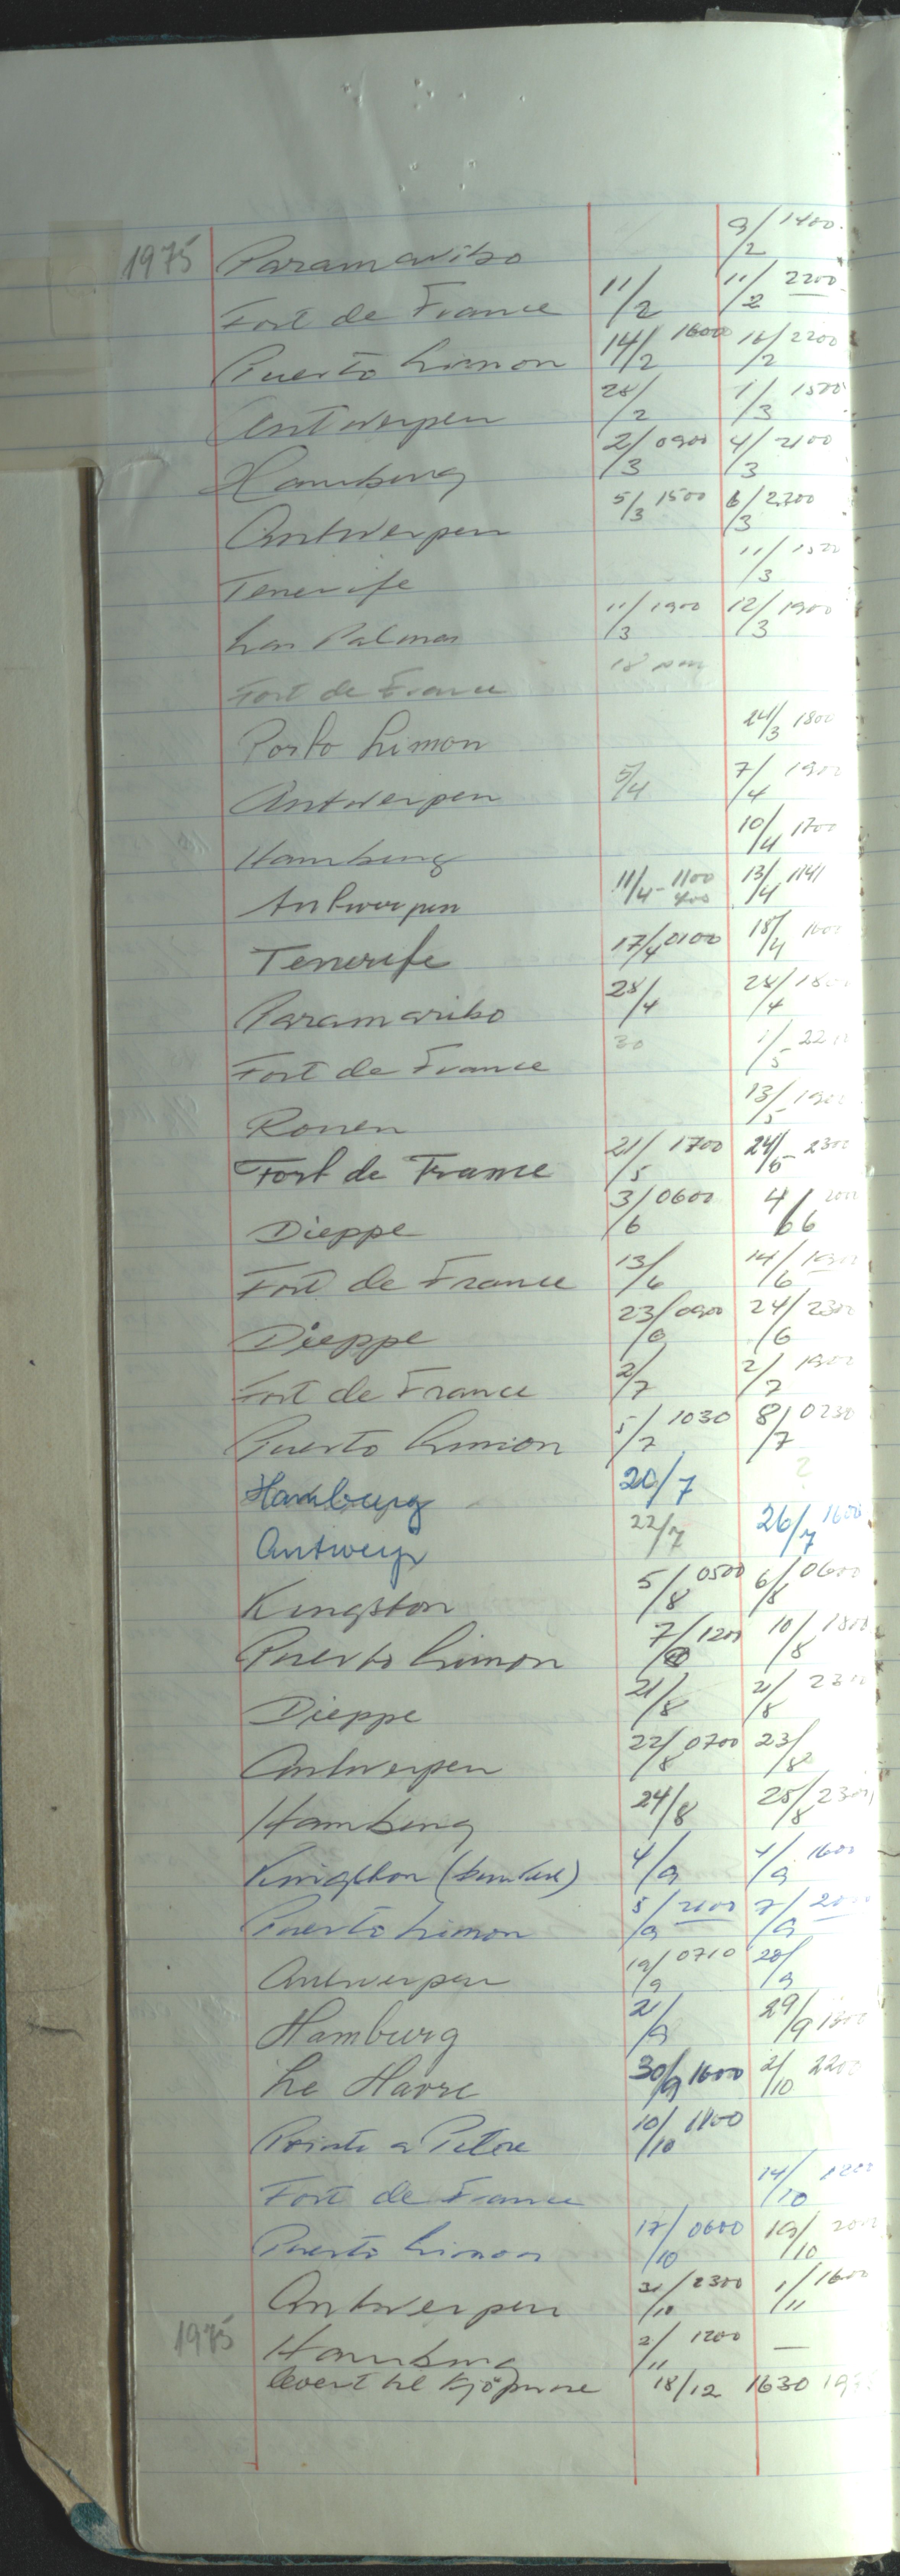 1975 Paramaribo 9/2 1400
Fort de France 11/2 11/2 2200
Puerto Limon 14/2 1600 16/2 2200
Antwerpen 28/2 1/3 1500
Hamburg 2/3 0900 4/3 2100
Antwerpen 5/3 1500 6/3 2200
Tenerife 11/3
Las Palmas 11/3 1900 12/3 1900
Fort de France 18
Porto Limon 24/3 1800
Antwerpen 5/4 7/4 1900
Hamburg 10/4 1700
Antwerpen 11/4 - 1100 13/4 1141
Tenerife 17/4 0100 18/4
Paramaribo 28/4 28/4
Fort de France 30 1/5
Rouen 13/5
Fort de France 21/5 1700 24/5 2300
Dieppe 3/6 0600 4/6
Fort de France 13/6 14/6
Dieppe 23/6 0900 24/6 2300
Fort de France 2/7 2/7 1900
Puerto Limon 5/7 1030 8/7 0230
Hamburg 20/7 ?
Antwerp 22/7 26/7 1600
Kingston 5/8 0500 6/8 0600
Puerto Limon 7/8 1200 10/8 1800
Dieppe 21/8 21/8
Antwerpen 22/8 0700 23/8
Hamburg 24/8 25/8
Kingston 4/9 4/9 1600
Puerto Limon 5/9 2100 7/9
Antwerpen 19/9 0710 20/9
Hamburg 21/9 29/9
Le Havre 30/9 1600 2/10 2200
Pointe a Pitre 10/10
Fort de France 14/10
Puerto Limon 17/10 0600 19/10
Antwerpen 31/10 2300 1/11 1600
1975 Hamburg 2/11 1200 —
levert til kjöperne 18/12 1630